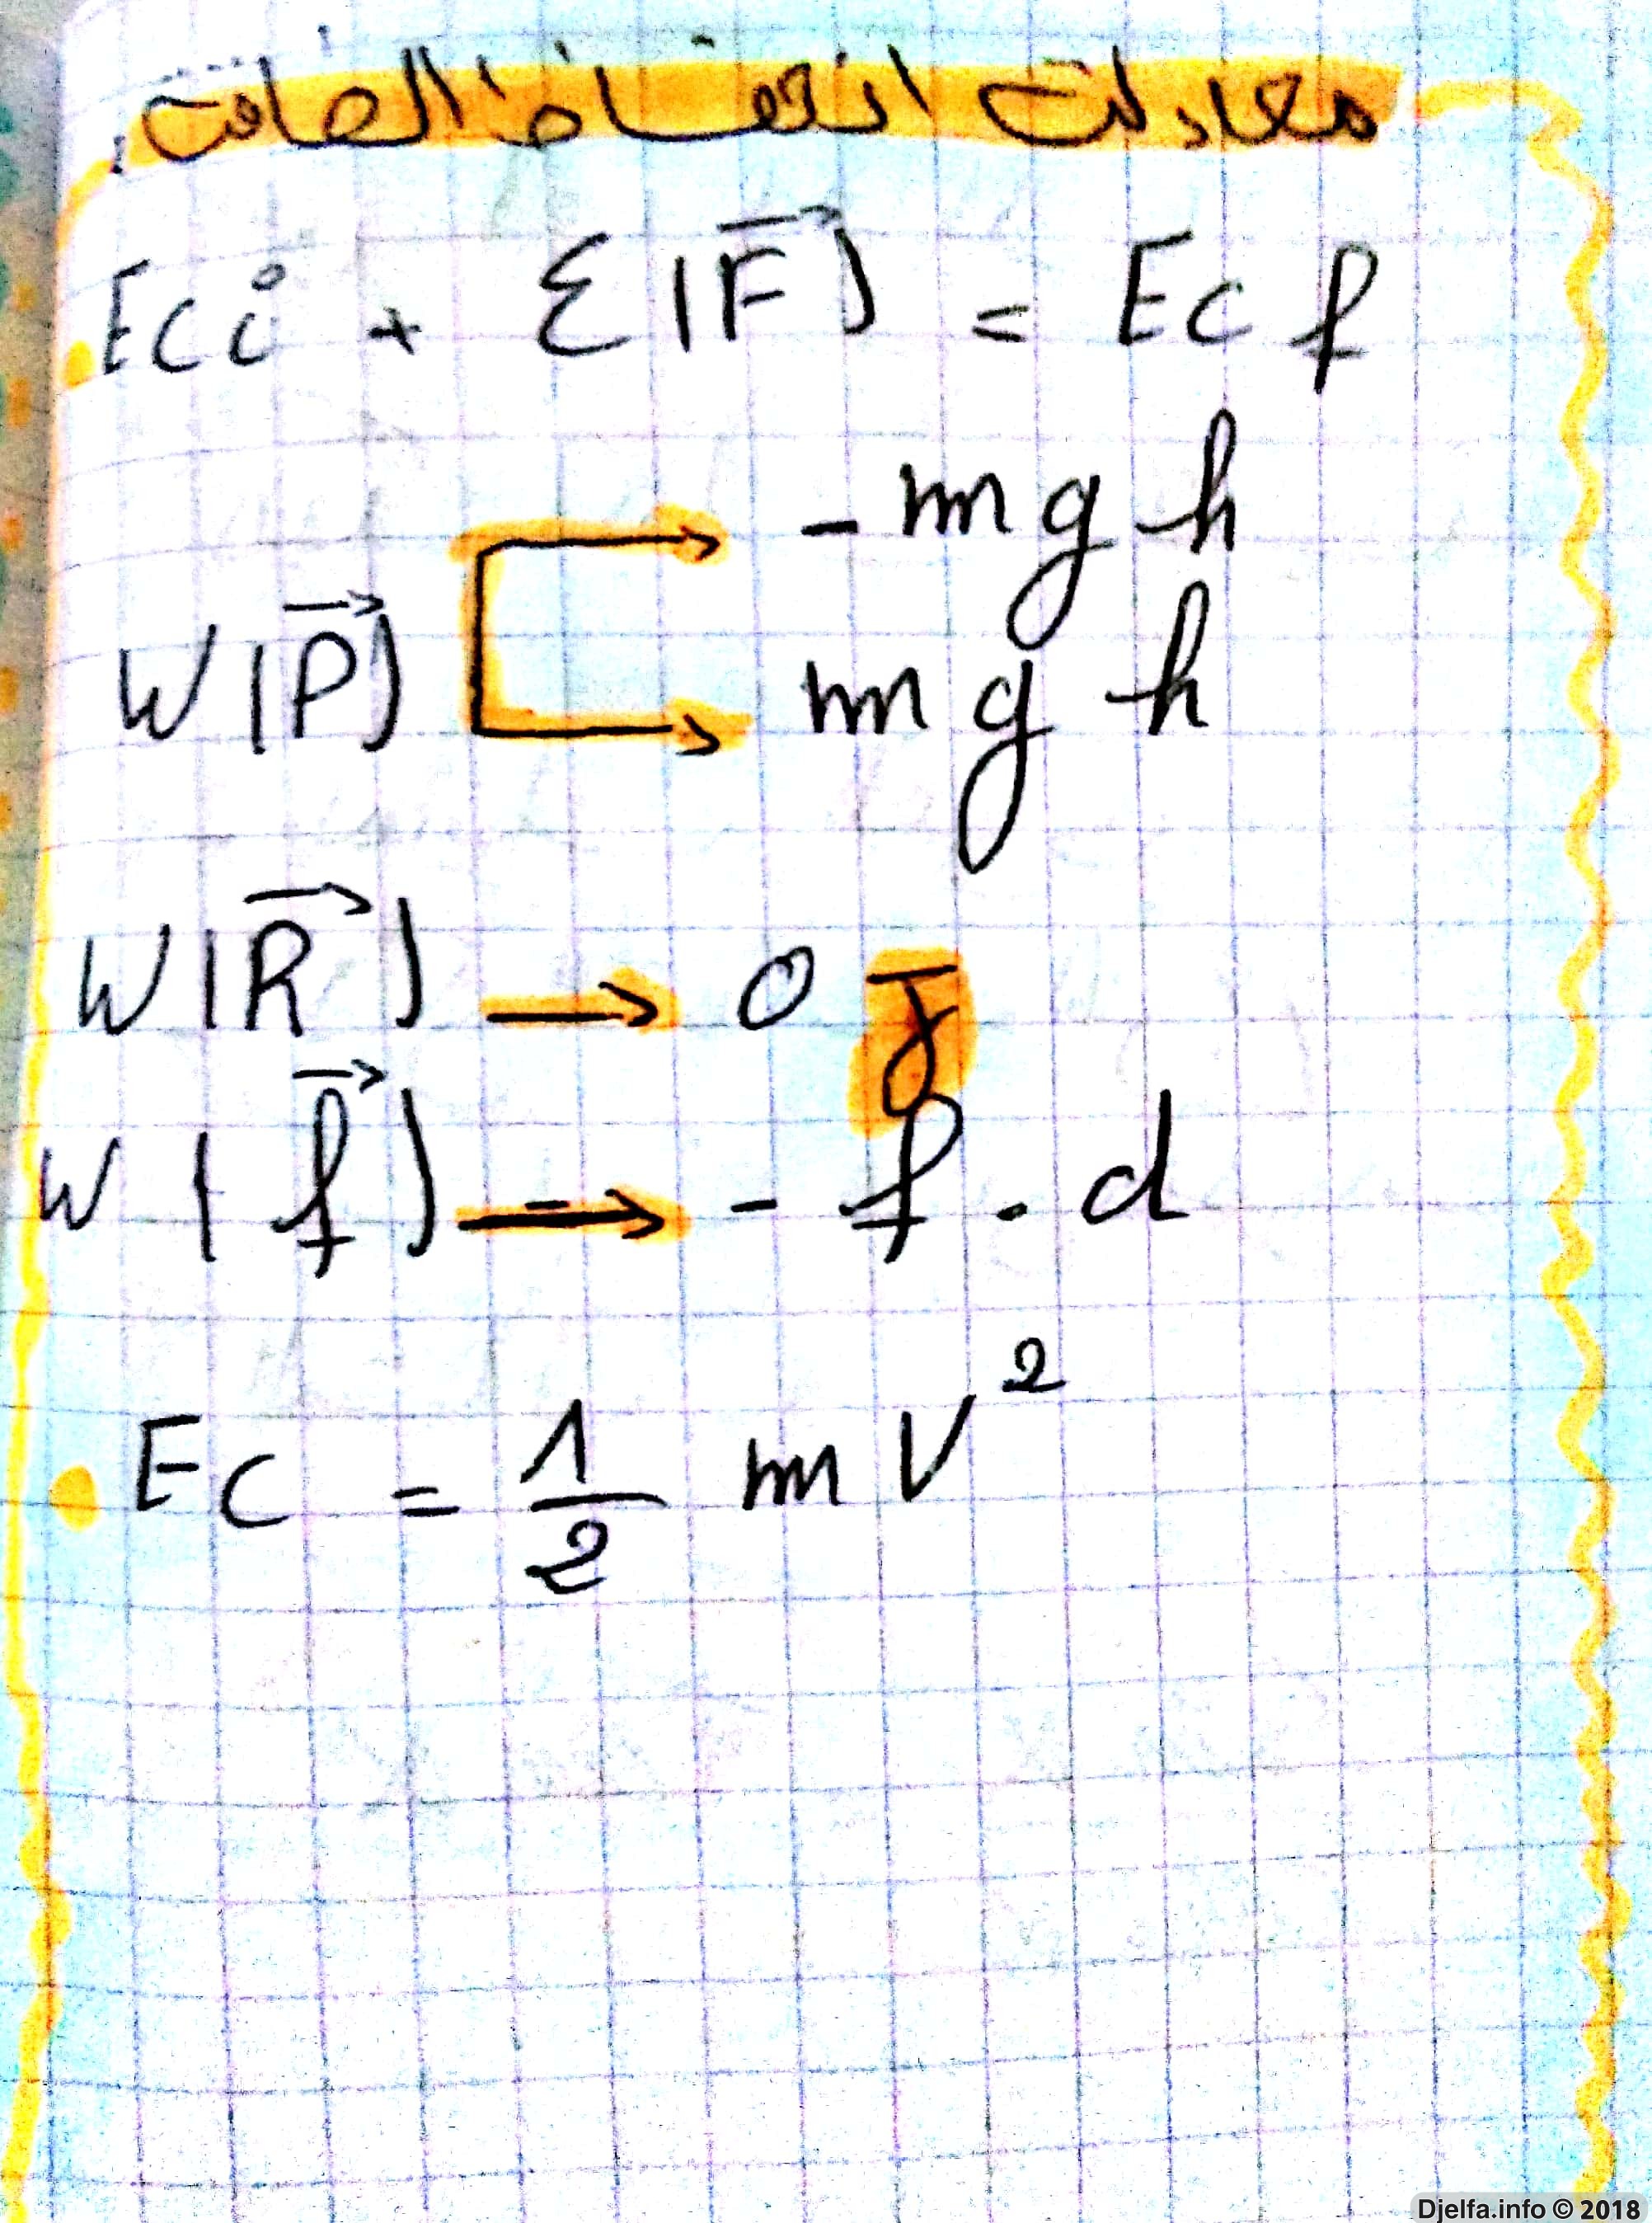 معادلت انحفاظ الطاقة:
Eci + Σ(F⃗) = Ecf
-mgh
W(P⃗)
mgh
W(R⃗) → 0 J
W(f⃗) → - f . d
Ec = 1/2 mV²
Djelfa.info © 2018